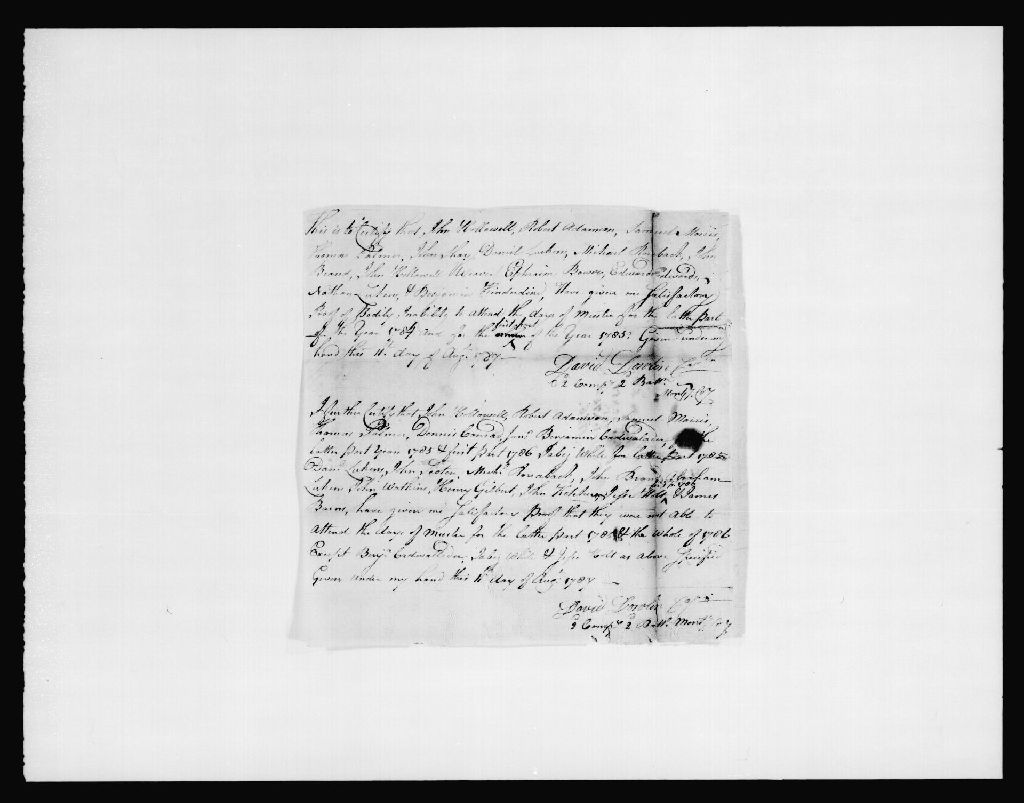 This is to Certify that John Hollowell, Robert Adamson, Samuel Morris
Thomas Palmer, John Shay, Daniel Lukens, Michael Rorabach, John
Brand, John Hollowell Weaver Ephraim Bowser, Edward Edwards,
Nathan Lukens, & Benjamin, Have given me Satisfactory
Proof of Bodily Inability to attend the days of Muster for the latter Part
of the Year 1784 and for the first part of the Year 1785. Given under my
hand this 11th day of Augt. 1787
David Davlin Capt.
2 Compy 2 Batt.
Montgy. Cty
I further Certify that John Hollowell, Robert Adamson, Samuel Morris,
Thomas Palmer, Dennis Conrad Junr. Benjamin Cadwalader,
latter part year 1785 & first part 1786 Jabez White for latter part 1785
Danl. Lukens, John Michl. Rorabach, John Brand, Abraham
Luken John Watkins, Henry Gilbert, John Jesse & James
Baron, have given me Satisfactory Proof that they were not Able to
Attend the days of Muster for the latter part 1785 & the Whole of 1786
Except Benjn. Cadwalader, Jabez White & Jesse as above Specified
Given Under my hand this 11th day of Augt. 1787
David Davlin Capt.
2 Compy. 2 Batt. Montgy. Cty